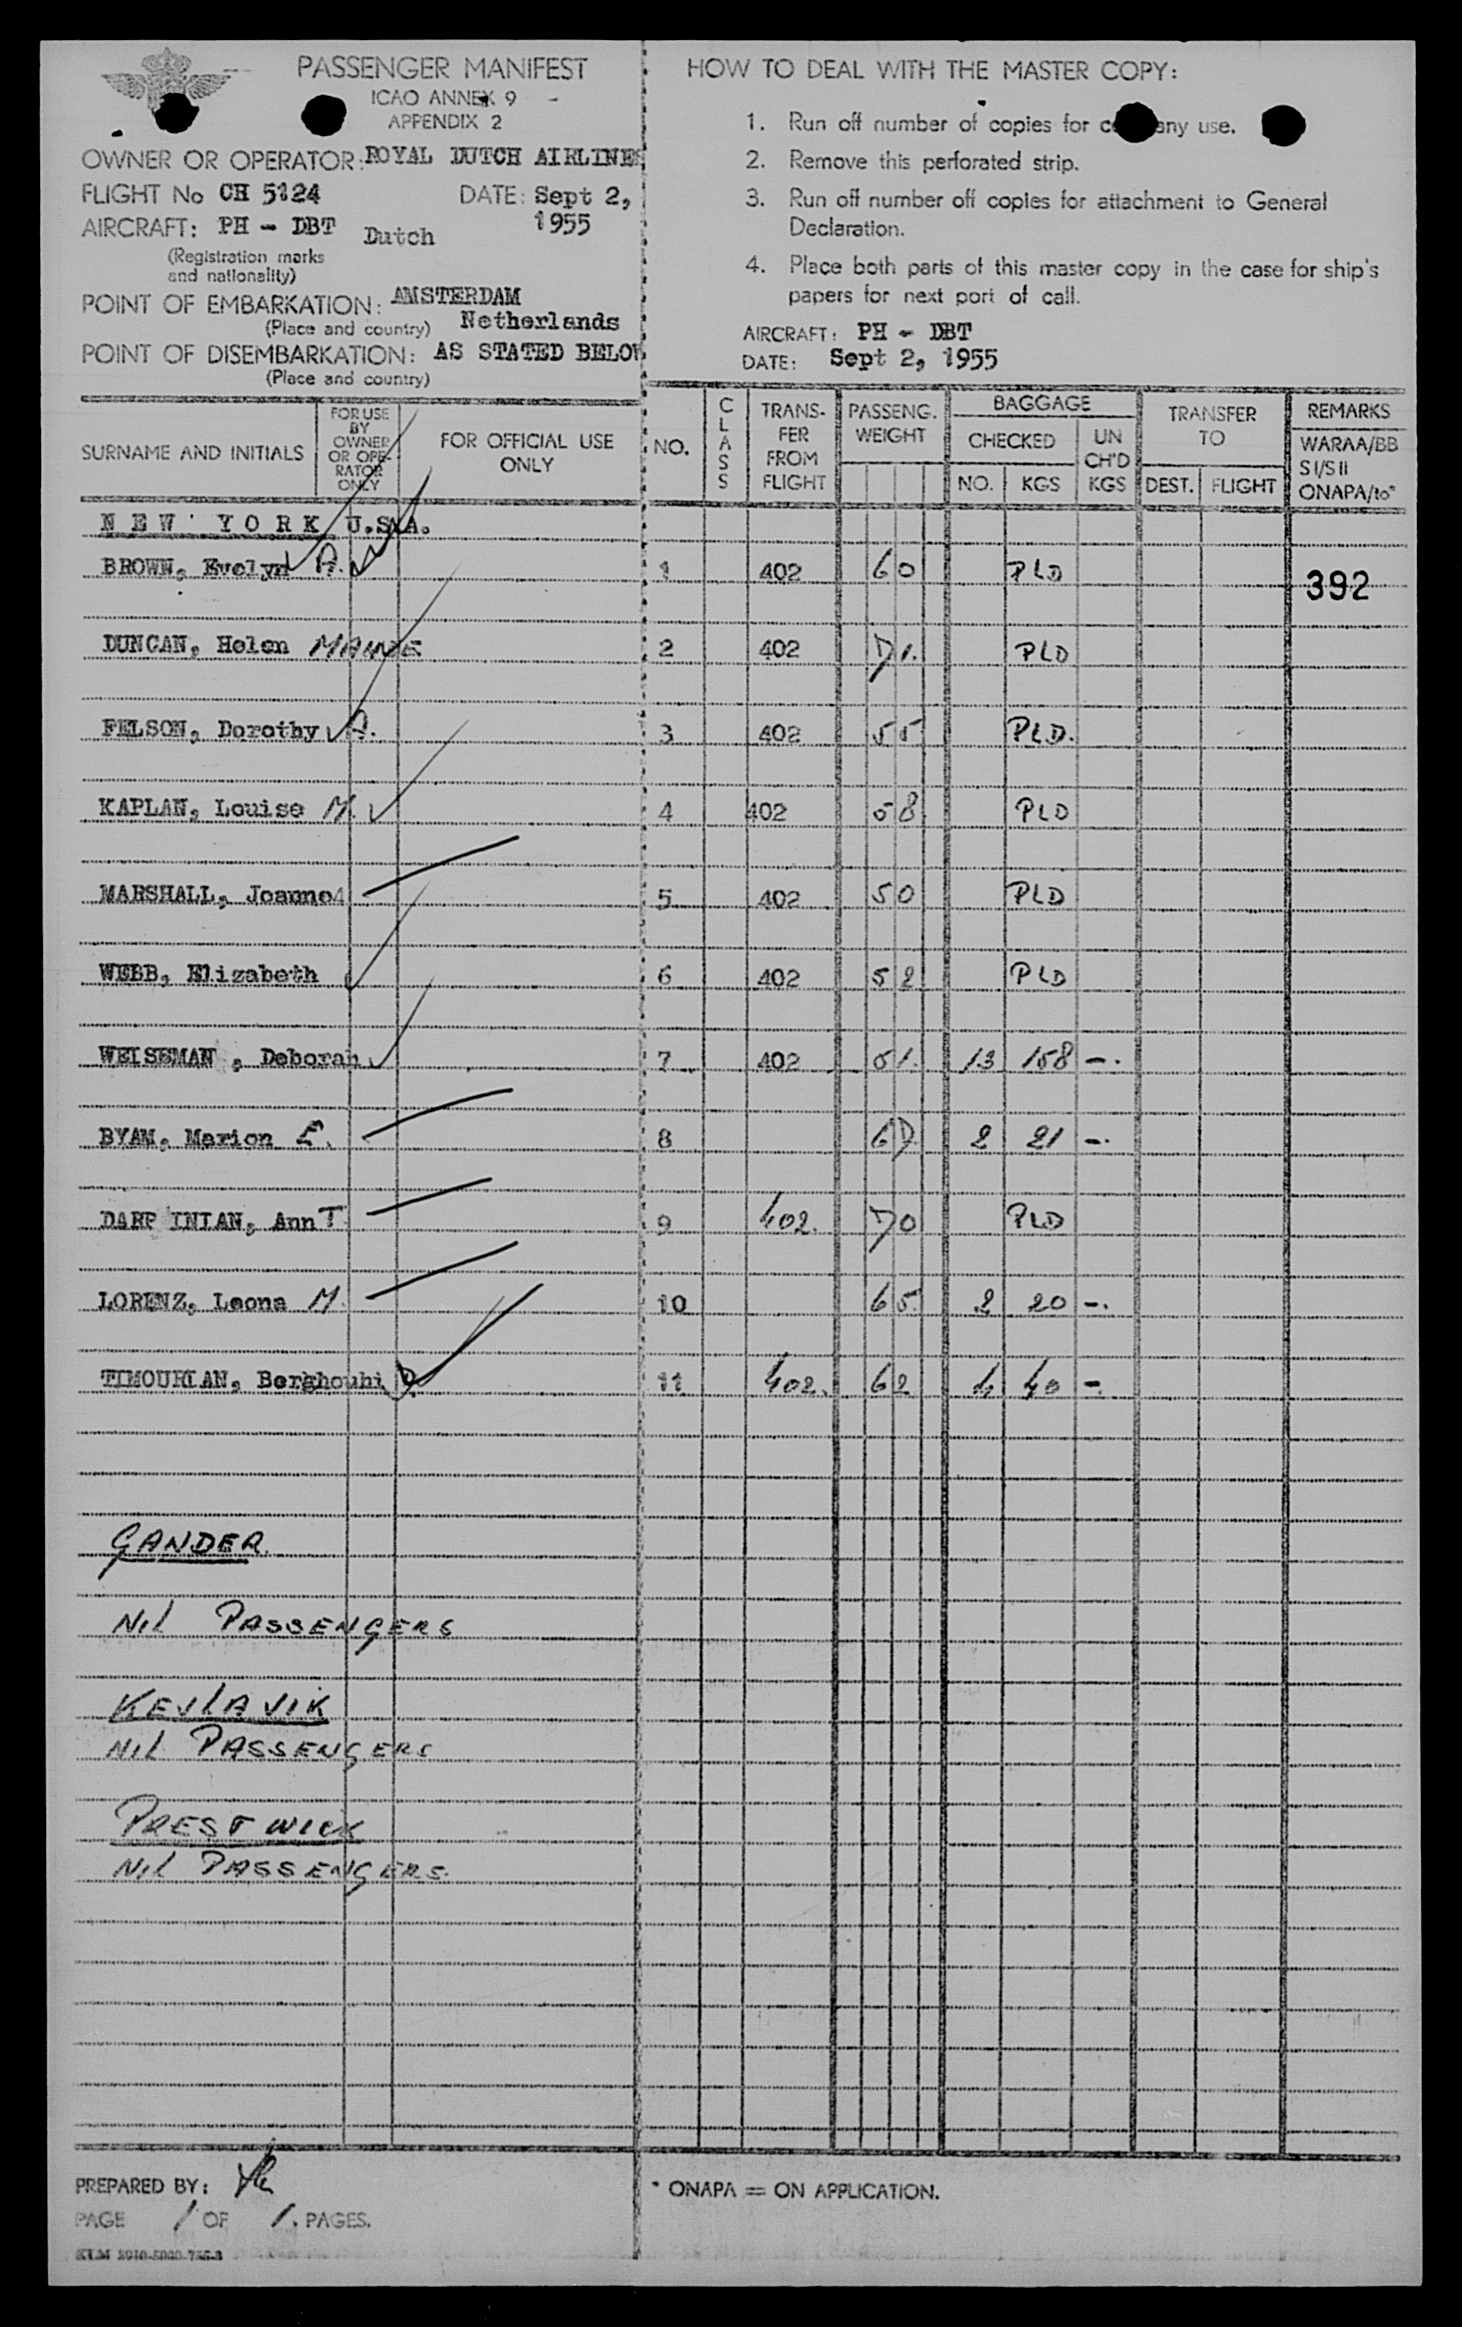 PASSENGER MANIFEST
ICAO ANNEX 9
APPENDIX 2
OWNER OR OPERATOR: ROYAL DUTCH AIRLINES
FLIGHT No CH 5124 DATE: Sept 2, 1955
AIRCRAFT: PH - DBT Dutch
(Registration marks
and nationality)
POINT OF EMBARKATION: AMSTERDAM
(Place and country) Netherlands
POINT OF DISEMBARKATION: AS STATED BELOW
(Place and country)
HOW TO DEAL WITH THE MASTER COPY:
1. Run off number of copies for company use.
2. Remove this perforated strip.
3. Run off number off copies for attachment to General
Declaration.
4. Place both parts of this master copy in the case for ship's
papers for next port of call.
AIRCRAFT: PH - DBT
DATE: Sept 2, 1955
SURNAME AND INITIALS
FOR USE BY OWNER OR OPERATOR ONLY
FOR OFFICIAL USE ONLY
NO.
CLASS
TRANSFER FROM FLIGHT
PASSENG. WEIGHT
BAGGAGE
CHECKED
NO. KGS
UNCH'D KGS
TRANSFER TO
DEST. FLIGHT
REMARKS
WARAA/BB
SI/SII
ONAPA/to*
NEW YORK U.S.A.
BROWN, Evelyn A. 1 402 60 PLD 392
DUNCAN, Helen 2 402 71. PLD
FELSON, Dorothy A. 3 402 55 PLD.
KAPLAN, Louise M. 4 402 58 PLD
MARSHALL, Joanne 5 402 50 PLD
WEBB, Elizabeth 6 402 52 PLD
WEISSMAN, Deborah 7 402 51. 13 158 -.
BYAM, Marion E. 8 67 2 21 -.
INIAN, Ann T 9 402. 70 PLD
LORENZ, Leona M. 10 65. 2 20 -.
TIMOURIAN, Berghouhi D. 11 402. 62 4 40 -.
GANDER.
Nil PASSENGERS
KEVLAVIK
Nil PASSENGERS
PRESTWICK
Nil PASSENGERS.
PREPARED BY:
PAGE 1 OF 1. PAGES.
* ONAPA = ON APPLICATION.